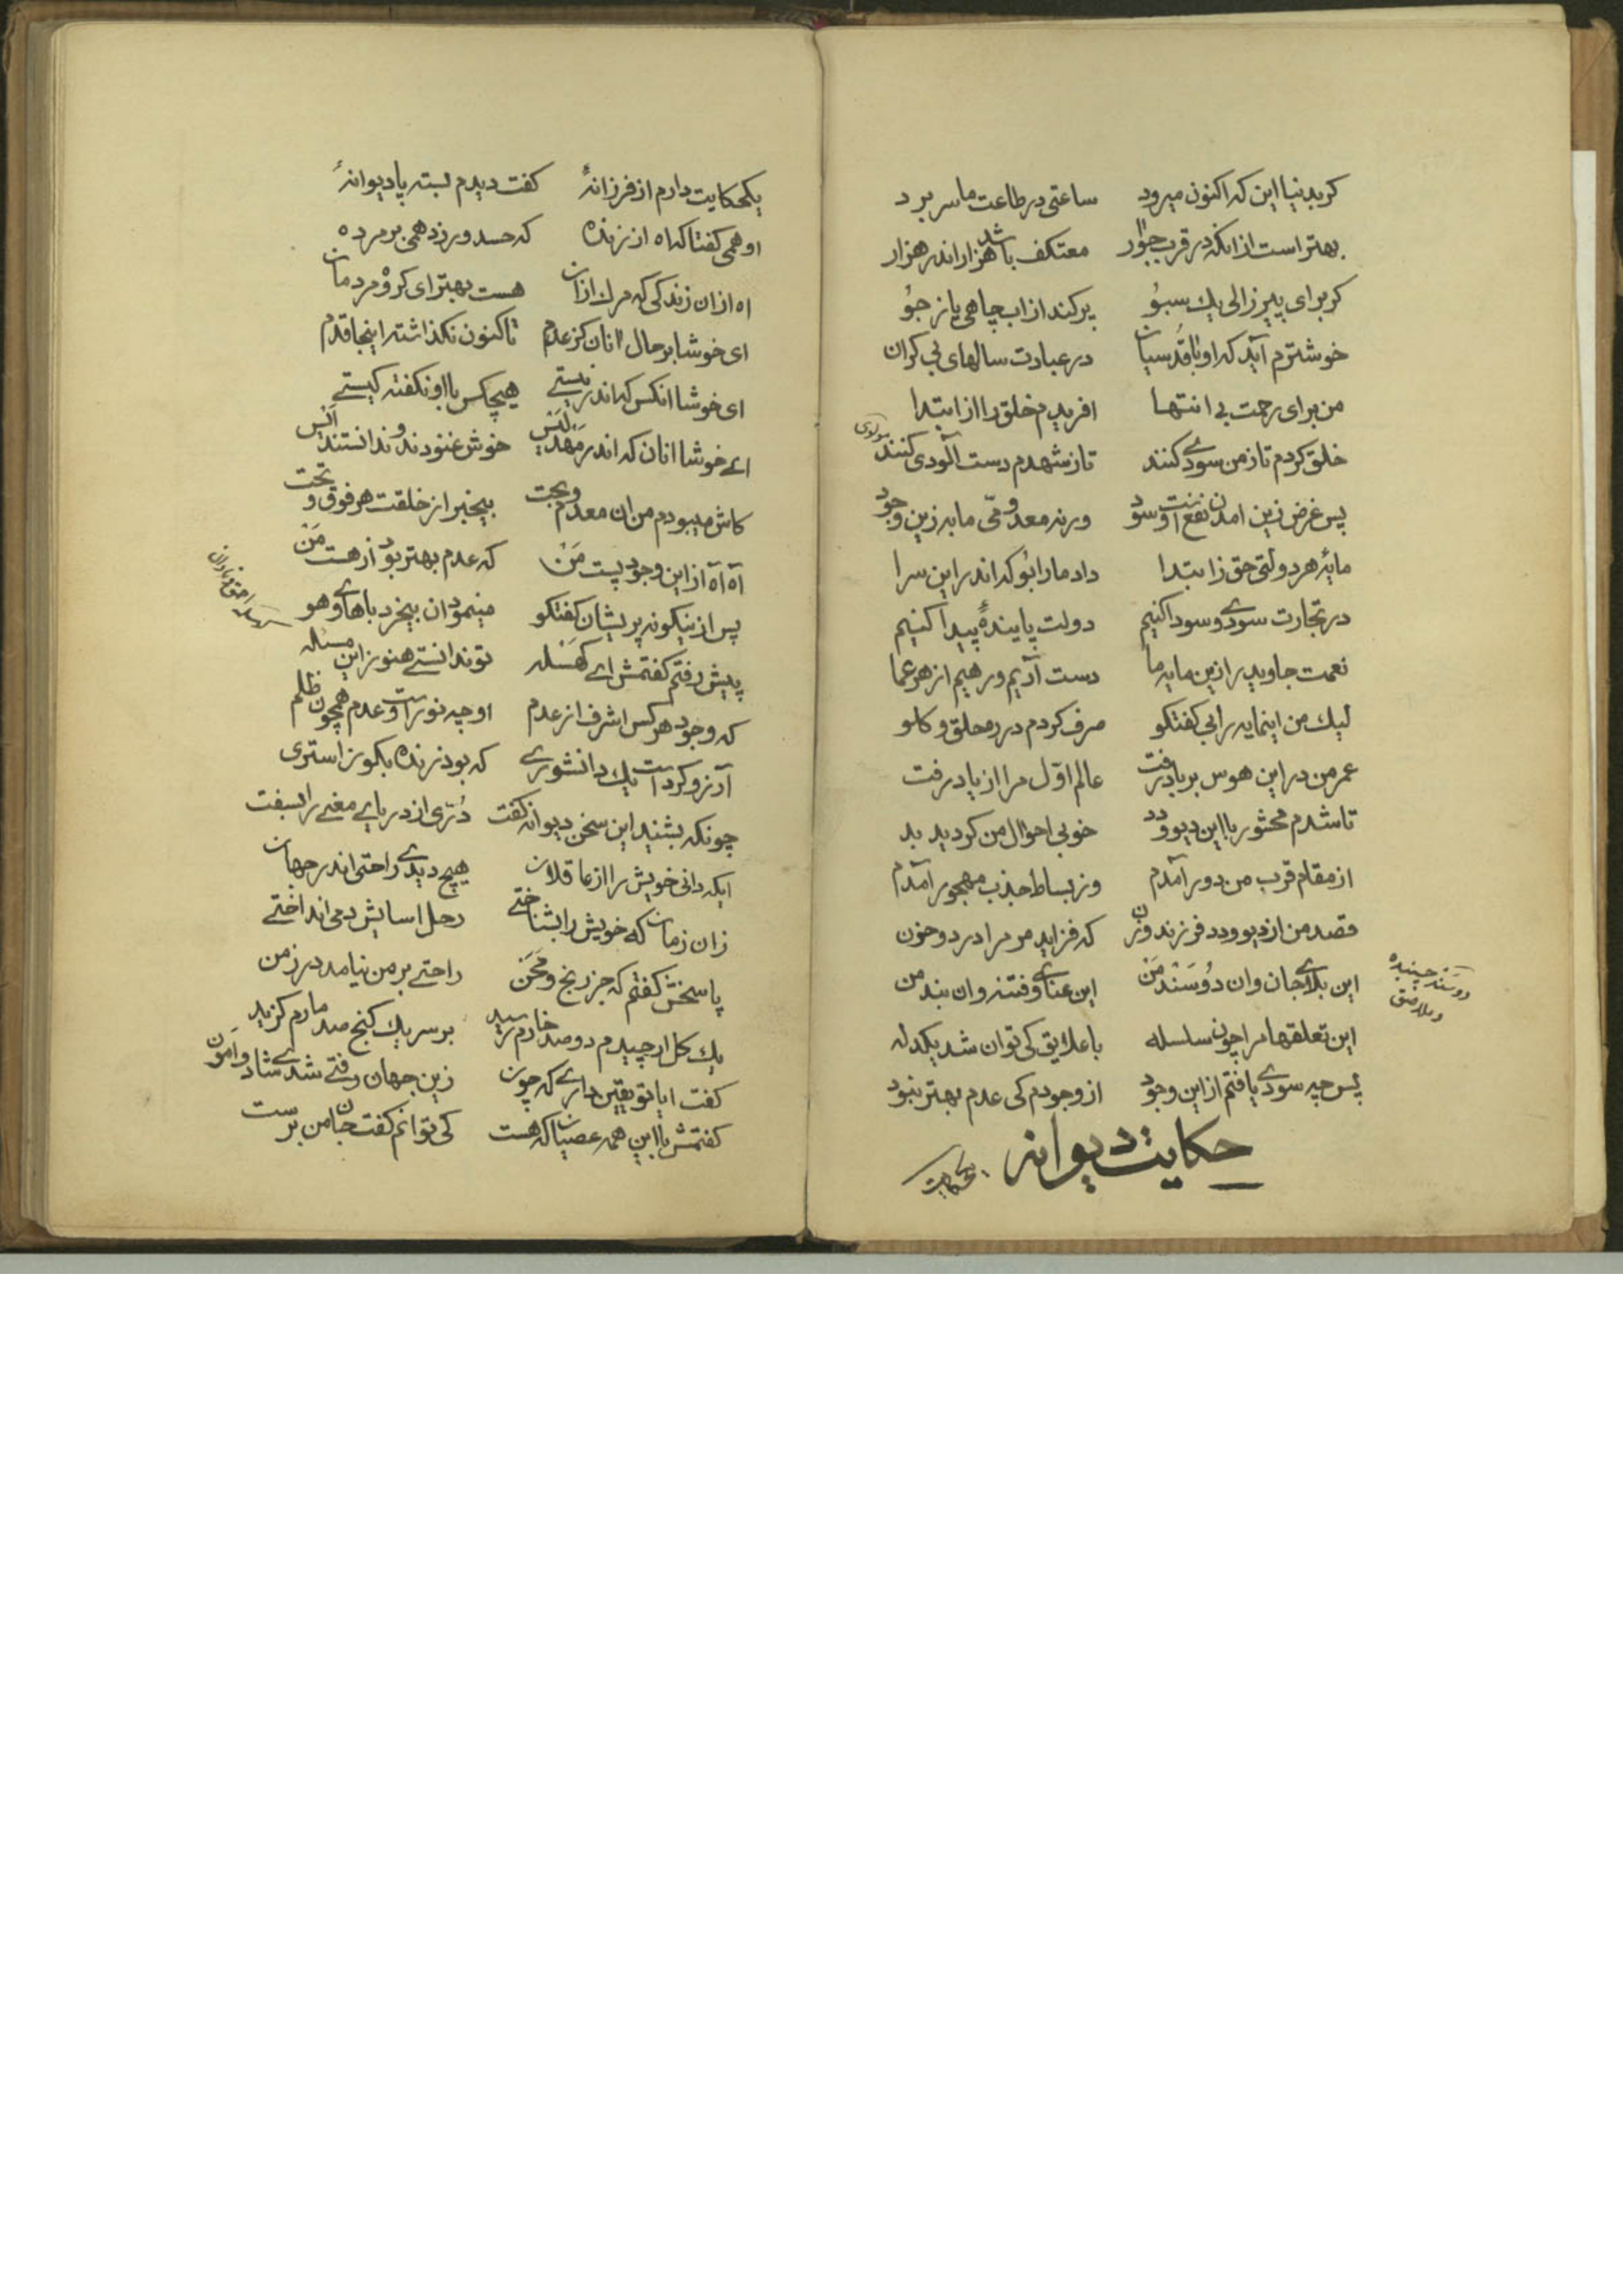 کربدنیا این که اکنون میرود ساعتی در طاعت ما سر برد
بهتر است از انکه در قرب جوار معتکف باشد هزار اندر هزار
کر برای پیر زالی یك سبو پر کند از اب چاهی یا ز جو
خوشترم آید که او با قدسیان در عبادت سالهای بی کران
من برای رحمت بی انتها افریدم خلق را از ابتدا
خلق کردم تا ز من سودی کنند تا ز شهدم دست آلودی کنند
مولوی
پس غرض زین امدن نفع است و سود ورنه معدومی ما به زین وجود
مایهٔ هر دولتی حق ز ابتدا داد ما را بو که اندر این سرا
در تجارت سودی و سودا کنیم دولت پایندهٔ پیدا کنیم
نعمت جاوید را زین مایه ما دست آریم و رهیم از هر عما
لیك من اینمایه را بی کفتکو صرف کردم در ره حلق و کلو
عمر من در این هوس بر باد رفت عالم اوّل مرا از یاد رفت
تا شدم محشور با این دیو و دد خوبی احوال من کردید بد
از مقام قرب من دور آمدم وز بساط جذب مهجور آمدم
قصد من از دیو و دد فرزند و زن که فزاید مر مرا درد و حزن
این بلای جان وان دوسند من این عنای و فتنه وان بند من
دوسند چسبنده و ملاصق
این تعلقها مرا چون سلسله با علایق کی توان شد یکدله
پس چه سودی یافتم از این وجود از وجودم کی عدم بهتر نبود
حکایت دیوانه
یکحکایت
یکحکایت دارم از فرزانهٔ کفت دیدم بسته پا دیوانهٔ
او همی کفتا که اه از زنده که حسد ورزد همی بر مرده
اه از ان زندکی که مرك از ان هست بهتر ای کروه مردمان
ای خوشا بر حال انان کز عدم تا کنون نکذاشته اینجا قدم
ای خوشا انکس که اندر نیستی هیچکس با او نکفته کیستی
ای خوشا انان که اندر مهد لیس خوش غنودند و ندانستند ایس
کاش میبودم من ان معدم وبحت بیخبر از خلقت هر فوق و تحت
آه آه از این وجود پست من که عدم بهتر بود از هست من
پس از ینکونه پریشان کفتکو مینمود ان بیخرد با های و هو
پیش رفتم کفتمش ای کهسله تو ندانستی هنوز این مسئله
که وجود هر کس اشرف از عدم او چه نور است و عدم همچون ظلم
آرزو کرد است یك دانشوری که بود زنده بکون استری
چونکه بشنید این سخن دیوانه کفت دُرّی از دریای معنی را بسفت
ایکه دانی خویش را از عاقلان هیچ دیدی راحتی اندر جهان
زان زمان که خویش را بشناختی رحل اسایش دمی انداختی
پاسخش کفتم که جز رنج و محن راحتی بر من نیامد در زمن
یك کل ار چیدم دو صد خارم رسید بر سر یك کنج صد مارم کزید
کفت ایا تو یقین داری که چون زین جهان رفتی شدی شاد و امون
کفتمش با این همه عصیان که هست کی توانم کفت جان من برست